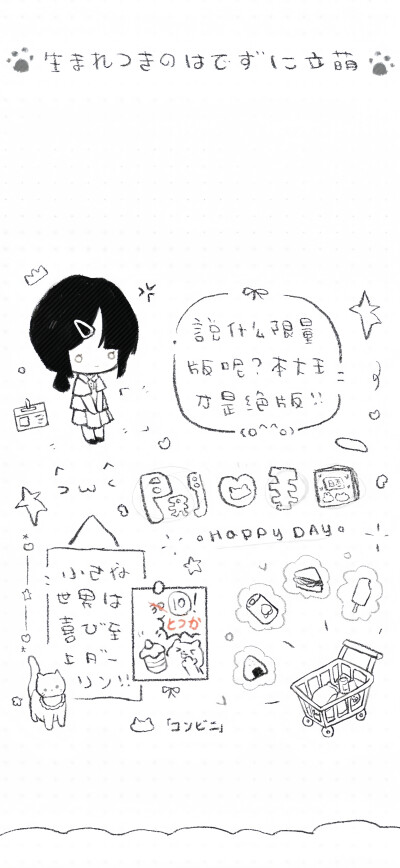 生まれつきのはでずに立萌
説什么限量
版呢？本大王
才是绝版!!
(o^^o)
HAPPY DAY
小さな
世界は
喜び至
上ダー
リン!!
10!
とつか
「コンビニ」